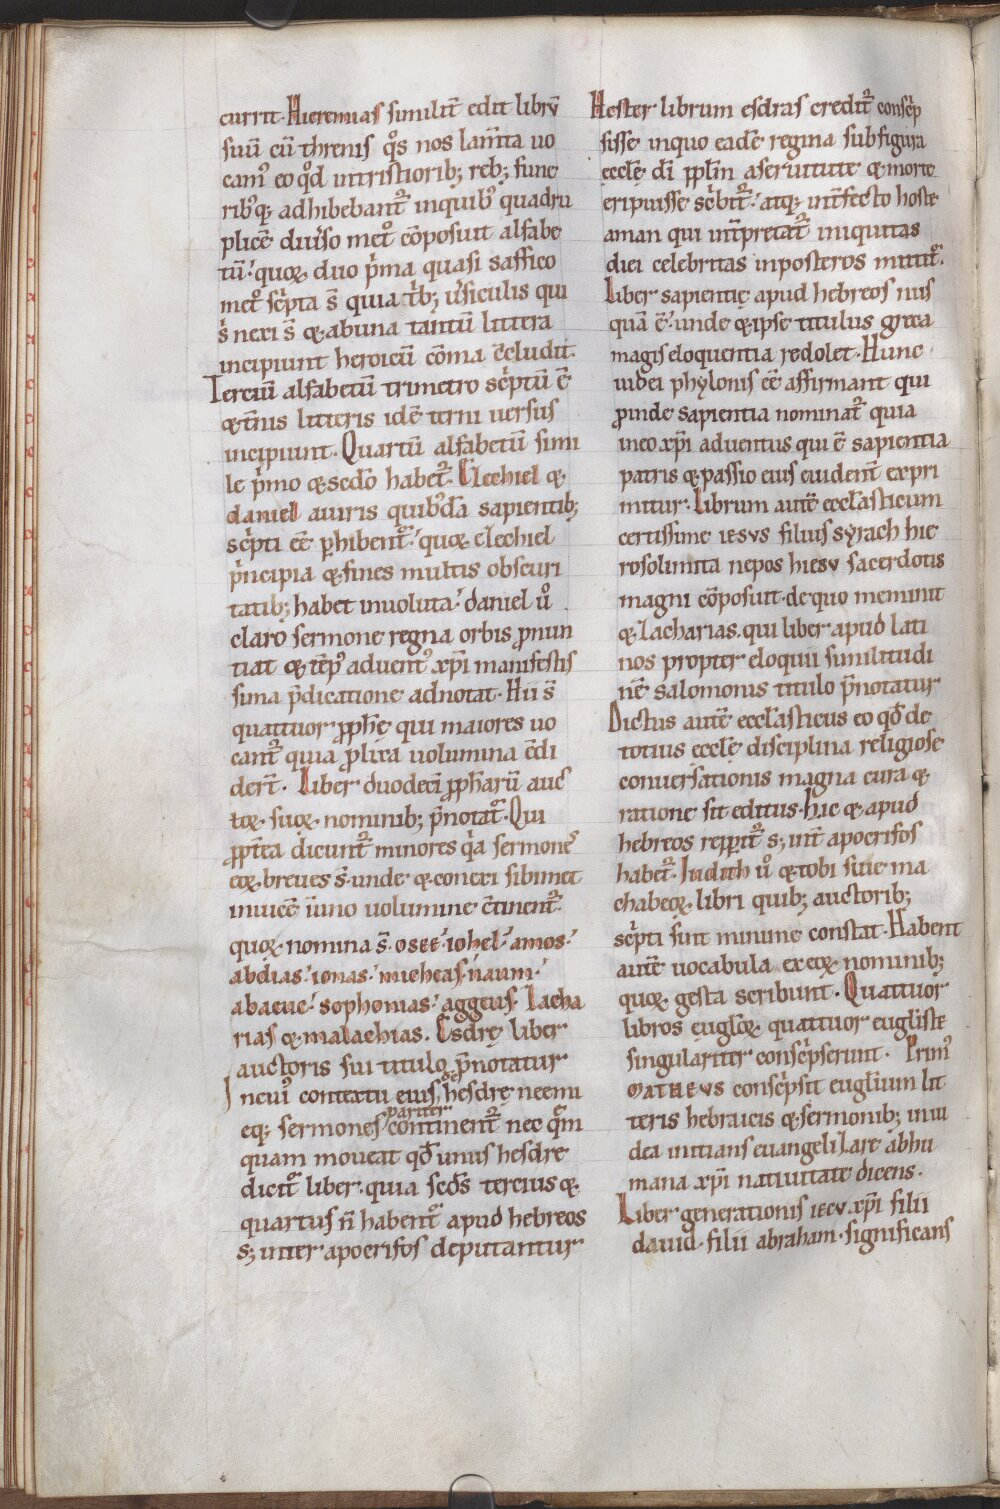 currit. Hieremias similit̄ edit librū
suū cū threnis q̊s nos lam̄ta uo
camꝰ eo qd̊ in tristiorib; reb; fune
ribꝰq; adhibebant᷑ in quibꝰ quadru
plicē diu̓so met̊ cōposuit alfabe
tū. quoꝝ duo p̓ma quasi saffico
met̊ sc̓pta s̄ quia t̓b; u̓siculis qui
s̓ nexi s̄ & ab una tantū littera
incipiunt heroicū cōma c̄cludit.
Terciū alfabetū trimetro sc̓ptū ē
& t̄nis litteris idē terni uersus
incipiunt. Quartū alfabetū simi
le p̓mo & scd̄o habet᷑. Ezechiel &
daniel a uiris quibꝰdā sapientib;
sc̓pti eē ꝑhibent᷑. quoꝝ ezechiel
p̓ncipia & fines multis obscuri
tatib; habet inuoluta. daniel ů
claro sermone regna orbis ꝓnun
tiat & tēpꝰ aduentꝰ xp̄i manifestis
sima p̄dicatione adnotat. Hii s̄
quattuor ꝓph̄ę qui maiores uo
cant᷑ quia ꝓlixa uolumina c̄di
dert̄. Liber duodeci ꝓph̄arū auc
toꝝ suoꝝ nominib; p̄notat᷑. Qui
ꝓpt̄ea dicunt᷑ minores q̓a sermonēs
eoꝝ breues s̄. unde & conexi sibimet
inuicē i uno uolumine c̄tinent᷑.
quoꝝ nomina s̄. osee. iohel. amos.
abdias. ionas. micheas. naum.
abacuc. sophonias. aggeus. Zacha
rias & malachias. Esdrę liber
auctoris sui titulo p̄notatur
In cuiꝰ contextu eiusde hesdrę neemi
eq; sermones pariter continent᷑ nec q̄m
quam moueat qd̄ unus hesdre
dicit᷑ liber. quia scd̄s tercius &
quartus n̄ habent᷑ apud hebreos
s; inter apocrifos deputantur
Hester librum esdras credit᷑ consc̓p
sisse in quo eadē regina sub figura
eccl̄ę dī ppl̄m a seruitute & morte
eripuisse sc̓bit᷑. atq; int̄fecto hoste
aman qui int̄pretat᷑ iniquitas
diei celebritas in posteros mittit᷑.
Liber sapientię apud hebreos nus
quā ē. unde & ipse titulus greca
magis eloquentia redolet. Hunc
iudei phylonis eē affirmant qui
ꝓinde sapientia nominat᷑ quia
in eo xp̄i aduentus qui ē sapientia
patris & passio eius euident̄ expri
mitur. Librum autē eccl̄asticum
certissime iesus filius syrach hie
rosolimita nepos hiesu sacerdotis
magni cōposuit. de quo meminit
& zacharias. qui liber apud lati
nos propter eloquii similitudi
nē salomonis titulo p̄notatur
Dictus autē eccl̄asticus eo qd̄ de
totius eccl̄ę disciplina religiose
conuersationis magna cura &
ratione sit editus. hic & apud
hebreos repꝑit᷑ s; int̄ apocrifos
habet᷑. Judith ů & tobi siue ma
chabeoꝝ libri quib; auctorib;
sc̓pti sint minime constat. Habent
autē uocabula ex eoꝝ nominib;
quoꝝ gesta scribunt. Quattuor
libros eųglioꝝ quattuor eugliste
singulariter consc̓pserunt. Primꝰ
matheus consc̓psit euglium lit
teris hebraicis & sermonib; in iu
dea initians euangelizare ab hu
mana xp̄i natiuitate dicens.
Liber generationis iecu xp̄i filii
dauid filii abraham. significans